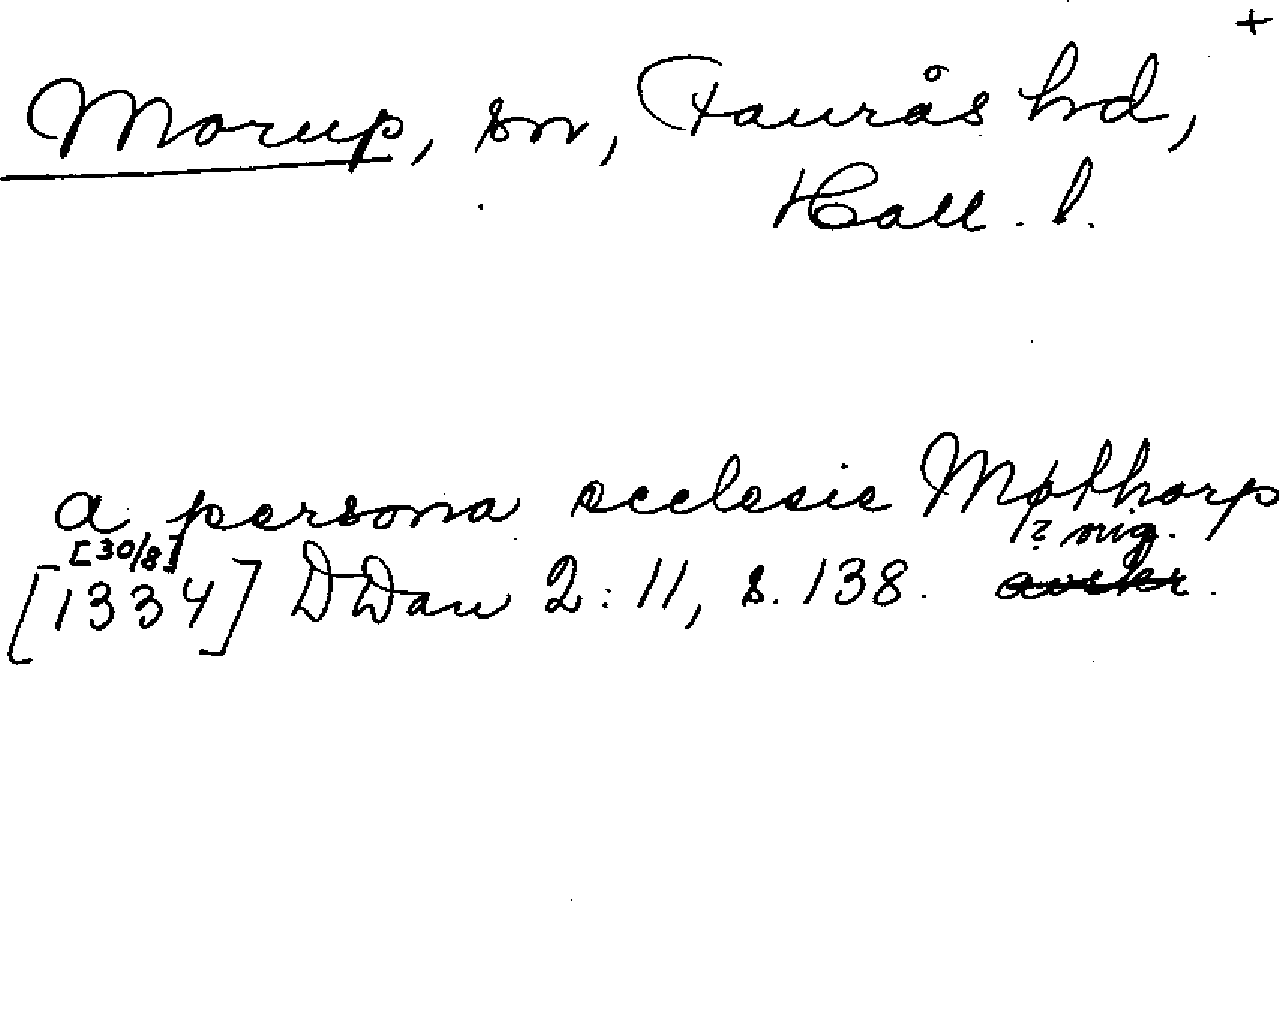 +
Morup, sn, Faurås hd,
Hall. l.
a persona ecclesie Møthorp
[30/8] ? orig.
[1334] DDan 2:11, s. 138.